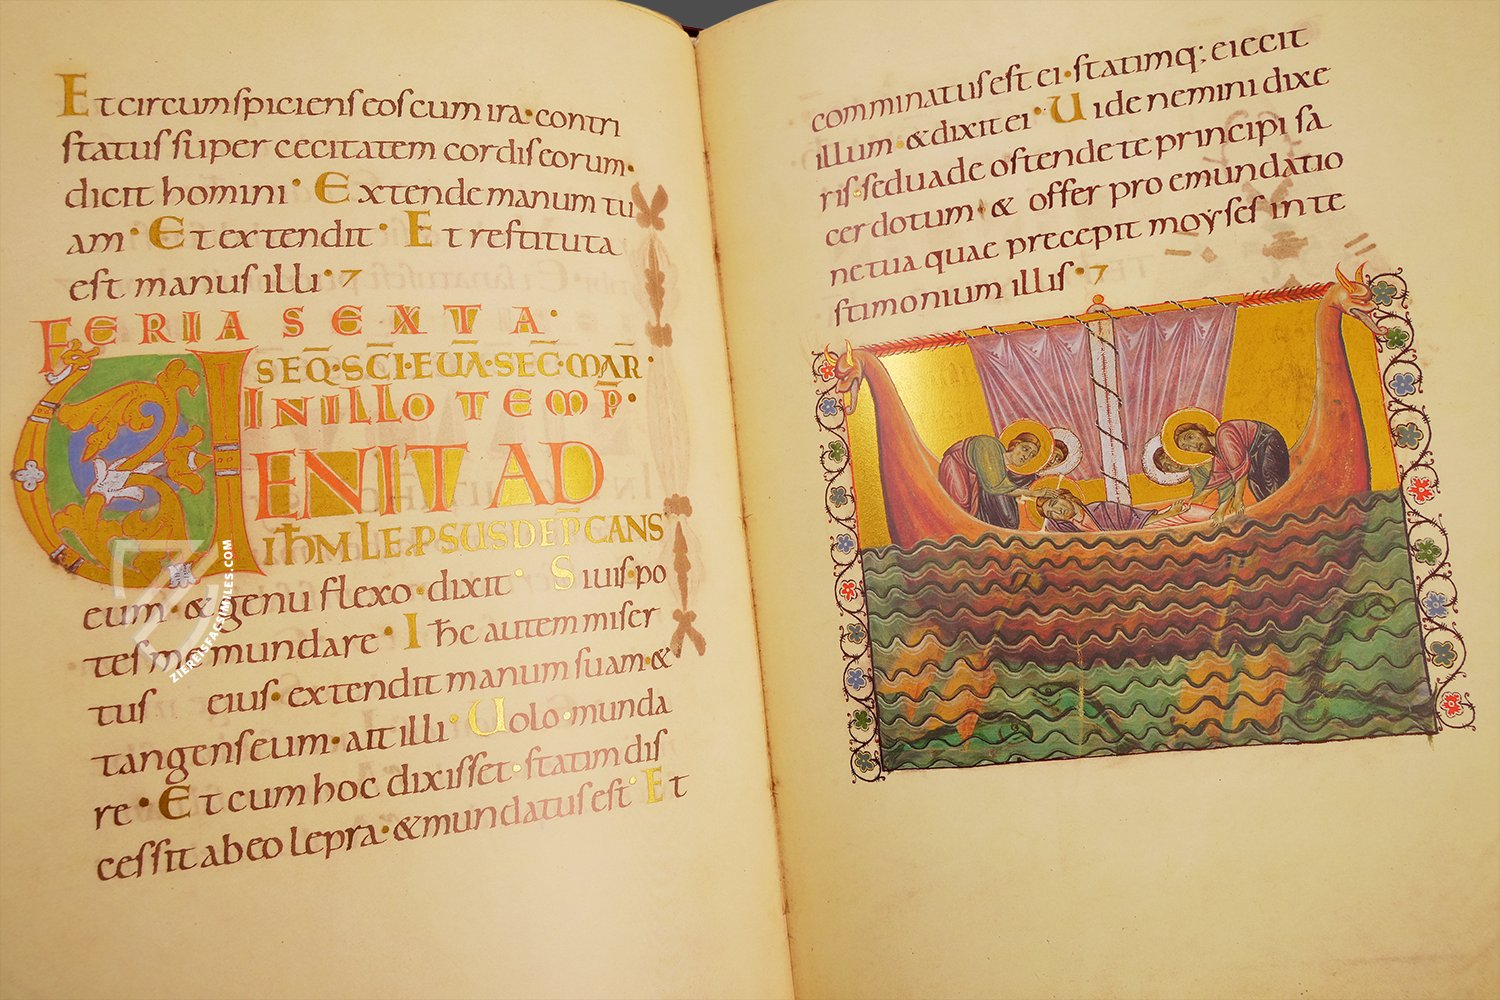 Et circumspiciens eos cum ira· contri
status super cecitatem cordis eorum·
dicit homini· Extende manum tu
am· Et extendit· Et restituta
est manus illi·
FERIA SEXTA·
SEQ̄·SC̄I·EUA̅·SEC̄·MAR̄·
IN ILLO TEMP̄·
UENIT AD
IH̄M LEPSUS DEP̄CANS
eum· & genu flexo· dixit· Si uis· po
tes me mundare· Ih̄c autem miser
tus eius· extendit manum suam· &
tangens eum· ait illi· Uolo· munda
re· Et cum hoc dixisset· statim dis
cessit ab eo lepra· & mundatus est· Et
comminatus est ei· statimq; eiecit
illum· & dixit ei· Uide nemini dixe
ris· sed uade ostende te principi sa
cerdotum· & offer pro emundatio
ne tua quae precepit moyses in te
stimonium illis·
ZIEREISFACSIMILES.COM